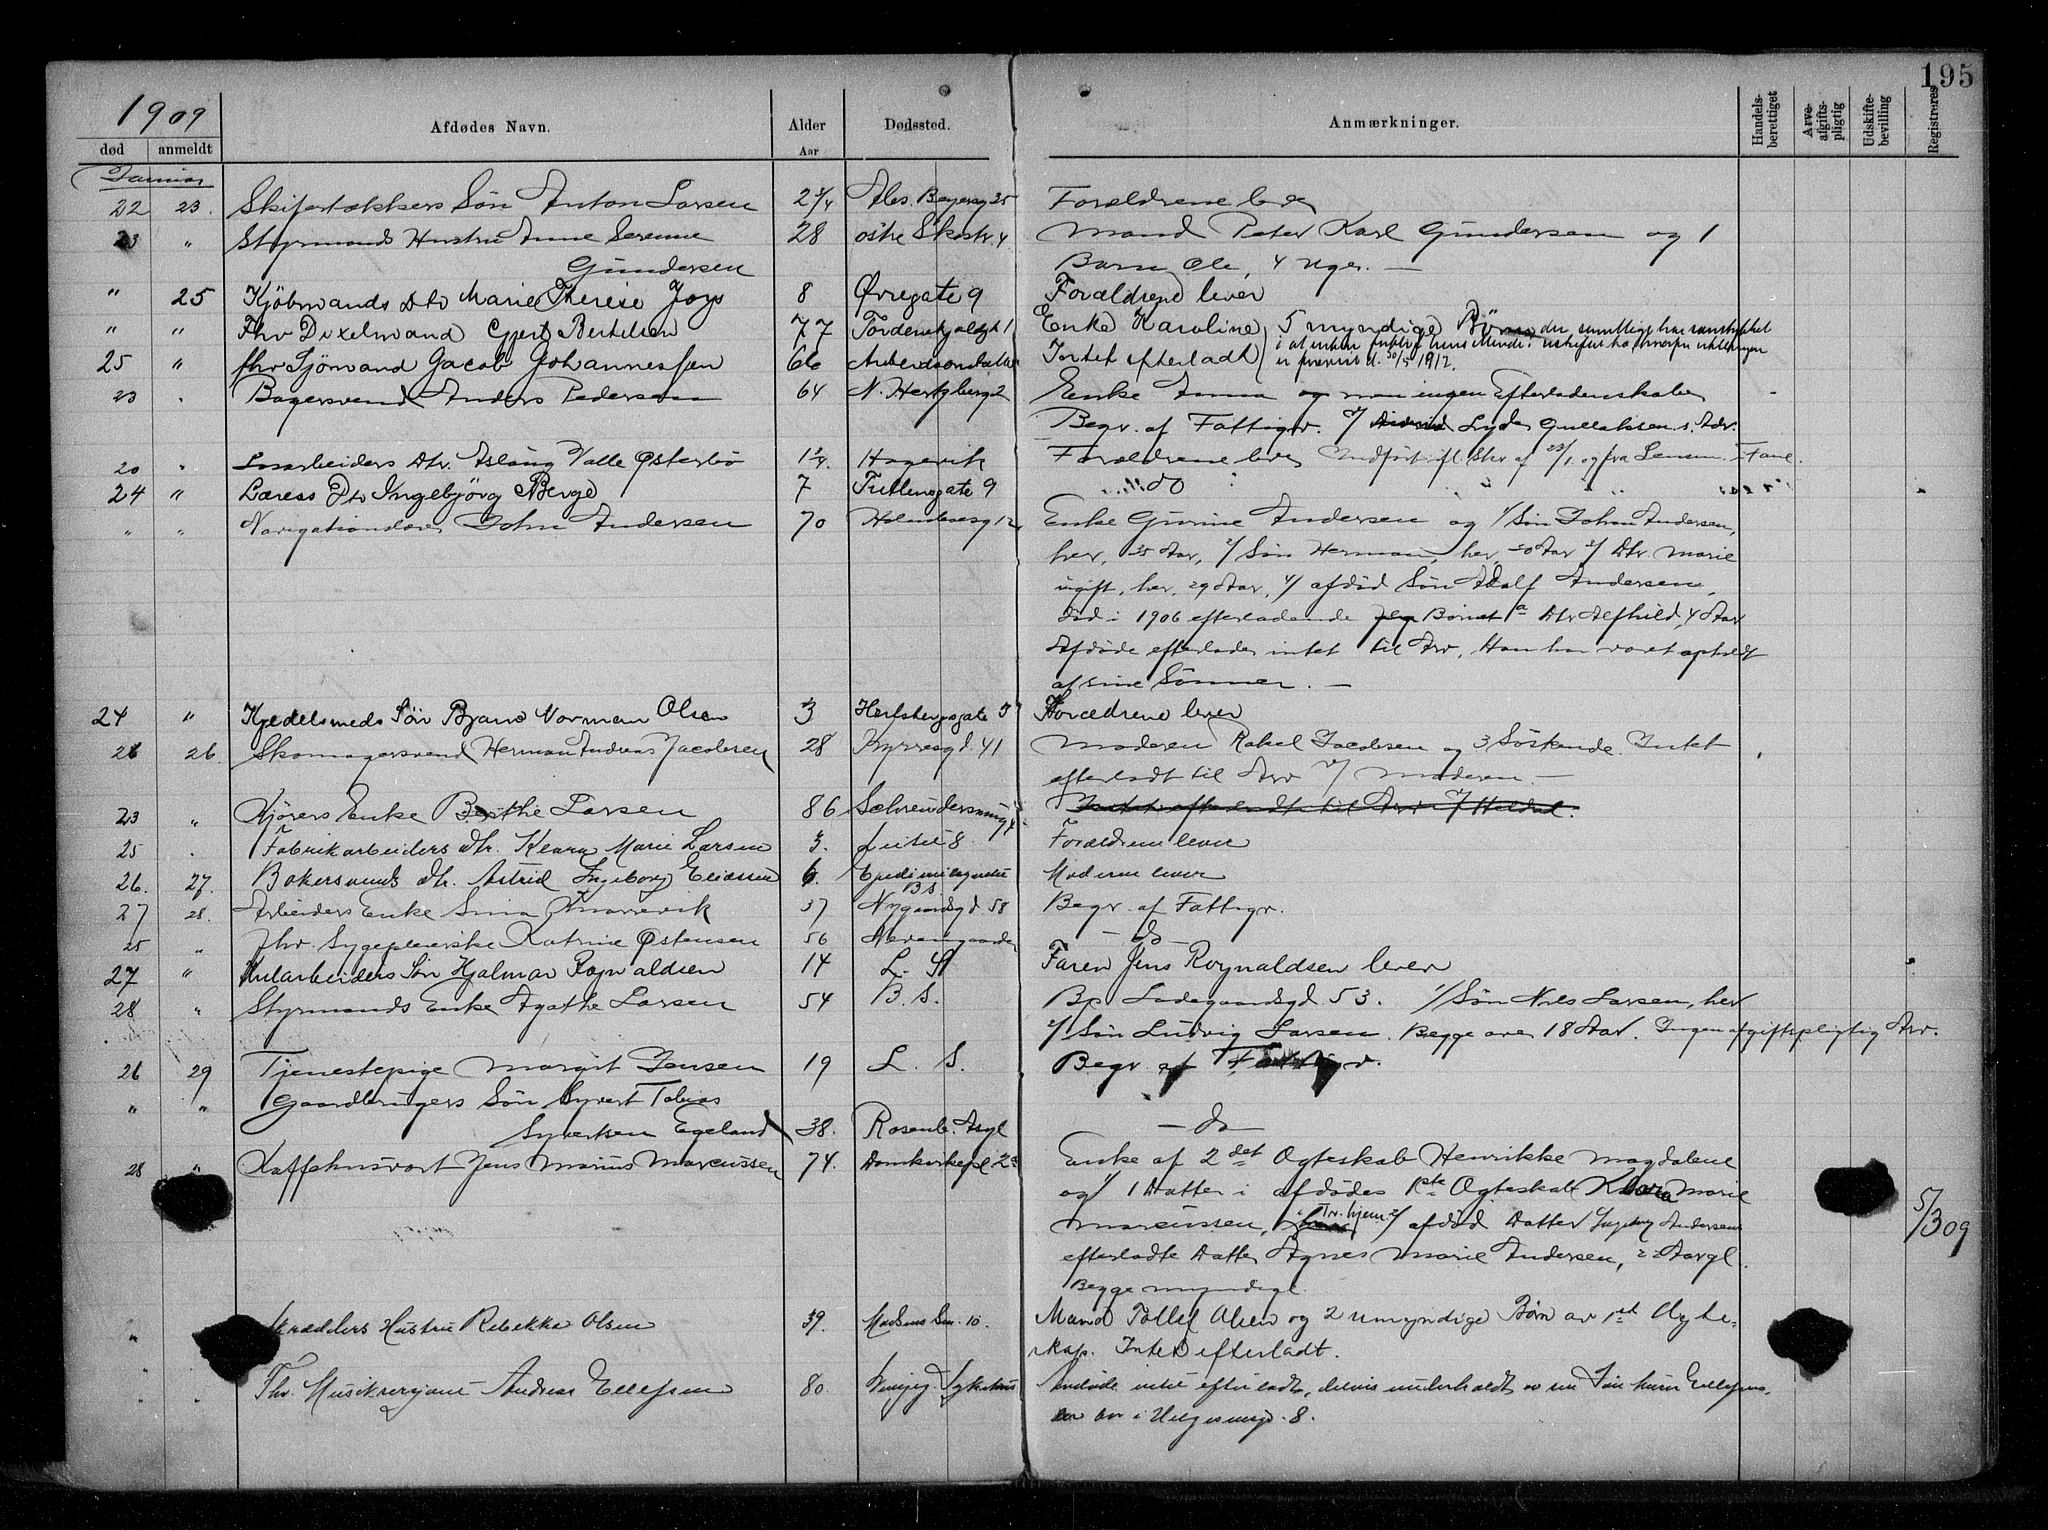 195
1909
død anmeldt Afdødes Navn. Alder Aar Dødssted. Anmærkninger. Handels-berettiget Arve-afgifts-pligtig Udskifte-bevilling Registreres
Januar
22 23. Skifertækkers Søn Anton Larsen 2 3/4 Forældrene lever
23 " Styrmands Hustru Anne Serenne 28 østre Skostr. 4 Mand Peter Karl Gundersen og 1
Gundersen Barn Ole, 4 Uger. —
" 25 Kjöbmands Dtr Marie Therese Joys 8 Øvregate 9 Forældrene lever
" " Fhv Dixelmand Gjert Bertelsen 77 Tordenskjoldsgt 1 Enke Karoline 5 myndige Börn der samtlige har samtykket
25 " fhv Sjömand Jacob Johannessen 66 Arbeidsanstalten Intet efterladt d. 30/5 1912.
23 " Bagersvend Anders Pedersen 64 N. Hertzbergg 2 Enke Anna og ingen Efterladenskaber
Begr. af Fattigv. Lyder Gullaksen s. Adv.
20 " Dtr. Aslaug Valle Østerbö Hagevik Forældrene lever Indfört ifl. Skr af 23/1. og fra Lensm. i Fane.
24 " Lærers Dtr Ingebjörg Berge 7 Tuttensgate 9 do
" " Navigationslærer John Andersen 70 Enke Gurine Andersen og 1/ Søn Johan Andersen,
her, 35 Aar, 2/ Søn Herman, her, 30 Aar 3/ Dtr. Marie
ugift, her, 29 Aar, 4/ afdöd Søn Adolf Andersen,
död i 1906 efterladende Barnet a Dtr Alfhild, 4 Aar
Afdöde efterlader intet til Arv, Han har været opholdt
af sine Sönner. —
24 " Kjedelsmeds Sön Bjarne Norman Olsen 3 Forældrene lever
26 26. Skomagersvend Herman Andreas Jacobsen 28 Kyrresgd. 41 Moderen Rakel Jacobsen og 3 Söskende. Intet
efterladt til Arv v/ Moderen —
23 " Kjörers Enke Berthe Larsen 86 Intet efterladt til Arv v/
25 " Fabrikarbeiders dtr. Klara Marie Larsen 3. Forældrene lever
26. 27. Bakersvends dtr. Astrid Ingeborg Eliassen 6. Moderen lever
B S.
27 28. Arbeiders Enke Sina 37 Nygaardsgd 58 Begr. af Fattigv.
25 " fhv. Sygepleierske Katrine Østensen 56 — do —
27 " Murarbeiders Sön Hjalmar Rognaldsen 14 L. S. Faren Jens Rognaldsen lever
28 " Styrmands Enke Agathe Larsen 54 B. S. Bp. Ladegaardsgd 53. 1/ Søn Nils Larsen, her
2/ Søn Ludvig Larsen. Begge over 18 Aar. Ingen afgiftspligtig Arv.
26 29 Tjenestepige Margit Jensen 19 L. S. Begr. af Fattigv.
" " Gaardbrugers Søn Syvert Tobias
Syvertsen Egeland 38. Rosenb. Asyl — do —
28 " Kaffehusvært Jens Marius Marcussen 74. Domkirkepl. 2a Enke af 2det Ogteskab Henrikke Magdalene
og 1/ 1 Datter i afdödes 1ste Ogteskab Klara Marie
Marcussen, Tr.hjem 2/ afdöd Datter Ingeborg Andersens 5/3 09
efterladte Datter Agnes Marie Andersen, 22 Aargl.
Begge myndige.
" Skrædders Hustru Rebekka Olsen 39. Mand Tollef Olsen og 2 umyndige Børn av 1ste Ægte-
skap. Intet efterladt.
Fhv. Andreas Ellefsen 80. Sykehus intet efterladt, delvis underholdt av
bor i 8.